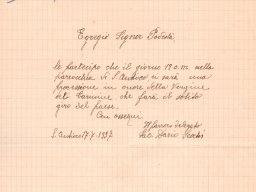 Egregio Signor Podestà
Le partecipo che il giorno 19 c.m. nella
parrocchia di S. Andrea vi sarà una
processione in onore della Vergine
del Carmine che farà il solito
giro del paese.
Con ossequi
S. Andrea 17/7 1937
Sac. Dario